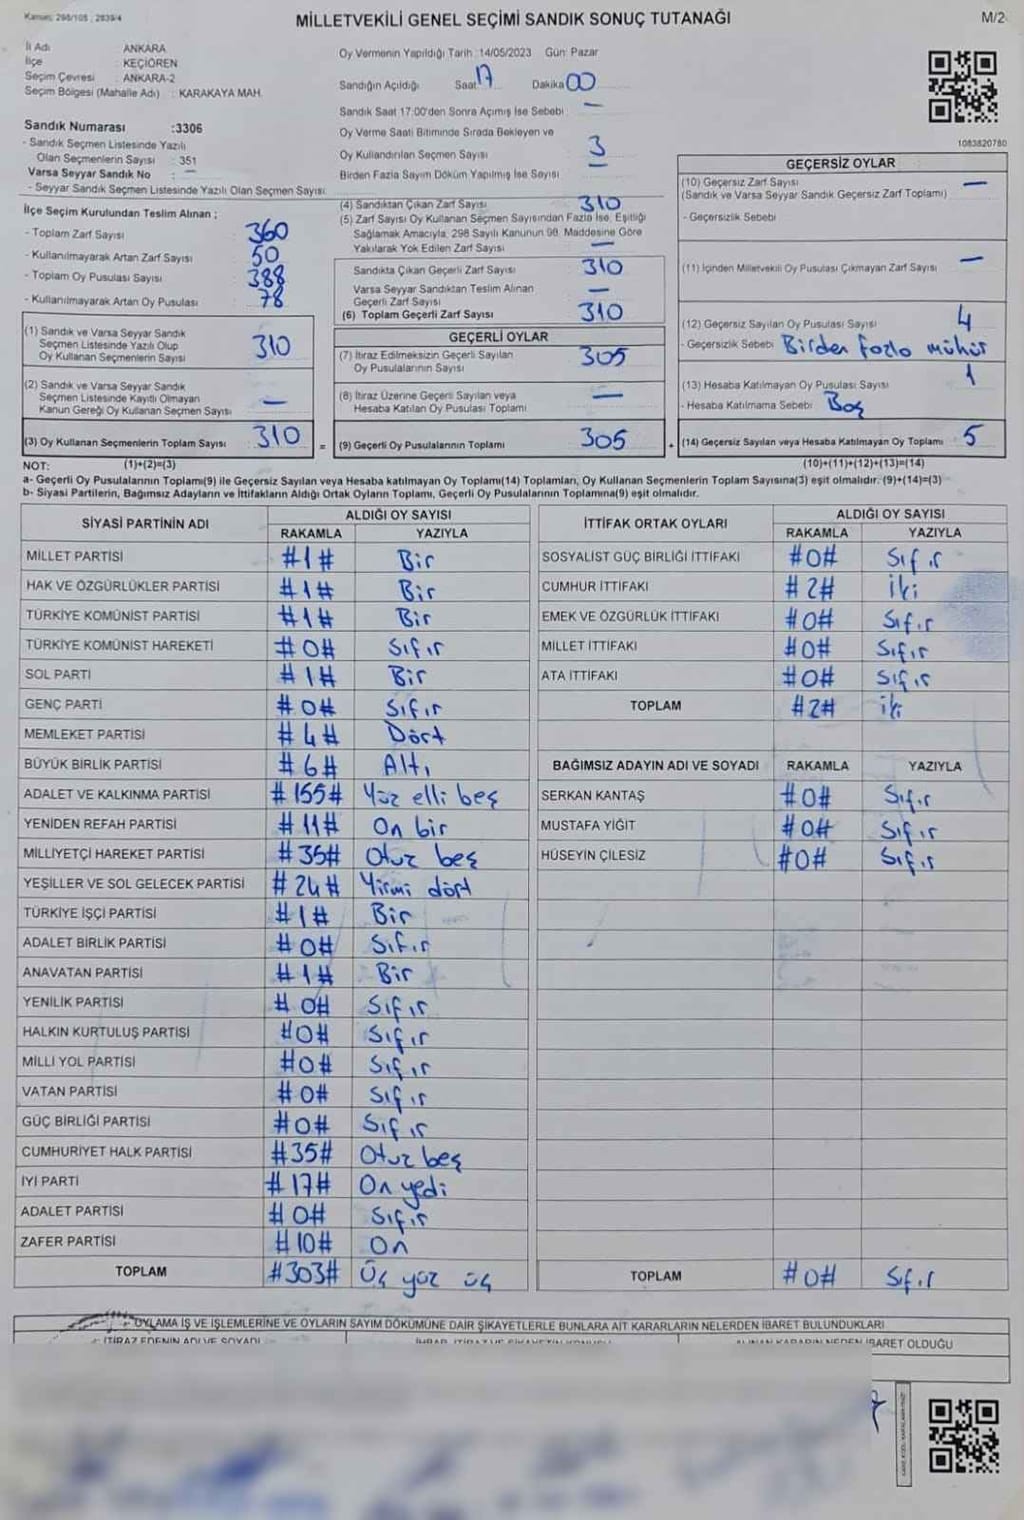 Kanun: 298/105 ; 2839/4
MİLLETVEKİLİ GENEL SEÇİMİ SANDIK SONUÇ TUTANAĞI
M/2
İl Adı ANKARA
İlçe KEÇİÖREN
Seçim Çevresi : ANKARA-2
Seçim Bölgesi (Mahalle Adı) : KARAKAYA MAH.
Sandık Numarası :3306
- Sandık Seçmen Listesinde Yazılı
Olan Seçmenlerin Sayısı : 351
Varsa Seyyar Sandık No : —
- Seyyar Sandık Seçmen Listesinde Yazılı Olan Seçmen Sayısı:
İlçe Seçim Kurulundan Teslim Alınan ;
- Toplam Zarf Sayısı 360
- Kullanılmayarak Artan Zarf Sayısı 50
- Toplam Oy Pusulası Sayısı 388
- Kullanılmayarak Artan Oy Pusulası 78
(1) Sandık ve Varsa Seyyar Sandık
Seçmen Listesinde Yazılı Olup
Oy Kullanan Seçmenlerin Sayısı 310
(2) Sandık ve Varsa Seyyar Sandık
Seçmen Listesinde Kayıtlı Olmayan
Kanun Gereği Oy Kullanan Seçmen Sayısı —
(3) Oy Kullanan Seçmenlerin Toplam Sayısı 310 =
Oy Vermenin Yapıldığı Tarih :14/05/2023 Gün: Pazar
Sandığın Açıldığı Saat 17 Dakika 00
Sandık Saat 17:00'den Sonra Açılmış İse Sebebi : —
Oy Verme Saati Bitiminde Sırada Bekleyen ve
Oy Kullandırılan Seçmen Sayısı 3
Birden Fazla Sayım Döküm Yapılmış İse Sayısı —
(4) Sandıktan Çıkan Zarf Sayısı 310
(5) Zarf Sayısı Oy Kullanan Seçmen Sayısından Fazla İse, Eşitliği
Sağlamak Amacıyla, 298 Sayılı Kanunun 98. Maddesine Göre
Yakılarak Yok Edilen Zarf Sayısı —
Sandıkta Çıkan Geçerli Zarf Sayısı 310
Varsa Seyyar Sandıktan Teslim Alınan
Geçerli Zarf Sayısı —
(6) Toplam Geçerli Zarf Sayısı 310
GEÇERLİ OYLAR
(7) İtiraz Edilmeksizin Geçerli Sayılan
Oy Pusulalarının Sayısı 305
(8) İtiraz Üzerine Geçerli Sayılan veya
Hesaba Katılan Oy Pusulası Toplamı —
(9) Geçerli Oy Pusulalarının Toplamı 305 +
1083820780
GEÇERSİZ OYLAR
(10) Geçersiz Zarf Sayısı —
(Sandık ve Varsa Seyyar Sandık Geçersiz Zarf Toplamı)
- Geçersizlik Sebebi
(11) İçinden Milletvekili Oy Pusulası Çıkmayan Zarf Sayısı —
(12) Geçersiz Sayılan Oy Pusulası Sayısı 4
- Geçersizlik Sebebi Birden fazla mühür
(13) Hesaba Katılmayan Oy Pusulası Sayısı 1
- Hesaba Katılmama Sebebi Boş
(14) Geçersiz Sayılan veya Hesaba Katılmayan Oy Toplamı 5
NOT: (1)+(2)=(3) (10)+(11)+(12)+(13)=(14)
a- Geçerli Oy Pusulalarının Toplamı(9) ile Geçersiz Sayılan veya Hesaba katılmayan Oy Toplamı(14) Toplamları, Oy Kullanan Seçmenlerin Toplam Sayısına(3) eşit olmalıdır. (9)+(14)=(3)
b- Siyasi Partilerin, Bağımsız Adayların ve İttifakların Aldığı Ortak Oyların Toplamı, Geçerli Oy Pusulalarının Toplamına(9) eşit olmalıdır.
SİYASİ PARTİNİN ADI ALDIĞI OY SAYISI
RAKAMLA YAZIYLA
MİLLET PARTİSİ #1# Bir
HAK VE ÖZGÜRLÜKLER PARTİSİ #1# Bir
TÜRKİYE KOMÜNİST PARTİSİ #1# Bir
TÜRKİYE KOMÜNİST HAREKETİ #0# Sıfır
SOL PARTİ #1# Bir
GENÇ PARTİ #0# Sıfır
MEMLEKET PARTİSİ #4# Dört
BÜYÜK BİRLİK PARTİSİ #6# Altı
ADALET VE KALKINMA PARTİSİ #155# Yüz elli beş
YENİDEN REFAH PARTİSİ #11# On bir
MİLLİYETÇİ HAREKET PARTİSİ #35# Otuz beş
YEŞİLLER VE SOL GELECEK PARTİSİ #24# Yirmi dört
TÜRKİYE İŞÇİ PARTİSİ #1# Bir
ADALET BİRLİK PARTİSİ #0# Sıfır
ANAVATAN PARTİSİ #1# Bir
YENİLİK PARTİSİ #0# Sıfır
HALKIN KURTULUŞ PARTİSİ #0# Sıfır
MİLLİ YOL PARTİSİ #0# Sıfır
VATAN PARTİSİ #0# Sıfır
GÜÇ BİRLİĞİ PARTİSİ #0# Sıfır
CUMHURİYET HALK PARTİSİ #35# Otuz beş
İYİ PARTİ #17# On yedi
ADALET PARTİSİ #0# Sıfır
ZAFER PARTİSİ #10# On
TOPLAM #303# Üç yüz üç
İTTİFAK ORTAK OYLARI ALDIĞI OY SAYISI
RAKAMLA YAZIYLA
SOSYALİST GÜÇ BİRLİĞİ İTTİFAKI #0# Sıfır
CUMHUR İTTİFAKI #2# İki
EMEK VE ÖZGÜRLÜK İTTİFAKI #0# Sıfır
MİLLET İTTİFAKI #0# Sıfır
ATA İTTİFAKI #0# Sıfır
TOPLAM #2# iki
BAĞIMSIZ ADAYIN ADI VE SOYADI RAKAMLA YAZIYLA
SERKAN KANTAŞ #0# Sıfır
MUSTAFA YİĞİT #0# Sıfır
HÜSEYİN ÇİLESİZ #0# Sıfır
TOPLAM #0# Sıfır
OYLAMA İŞ VE İŞLEMLERİNE VE OYLARIN SAYIM DÖKÜMÜNE DAİR ŞİKAYETLERLE BUNLARA AİT KARARLARIN NELERDEN İBARET BULUNDUKLARI
İTİRAZ EDENİN ADI VE SOYADI
İBARET OLDUĞU